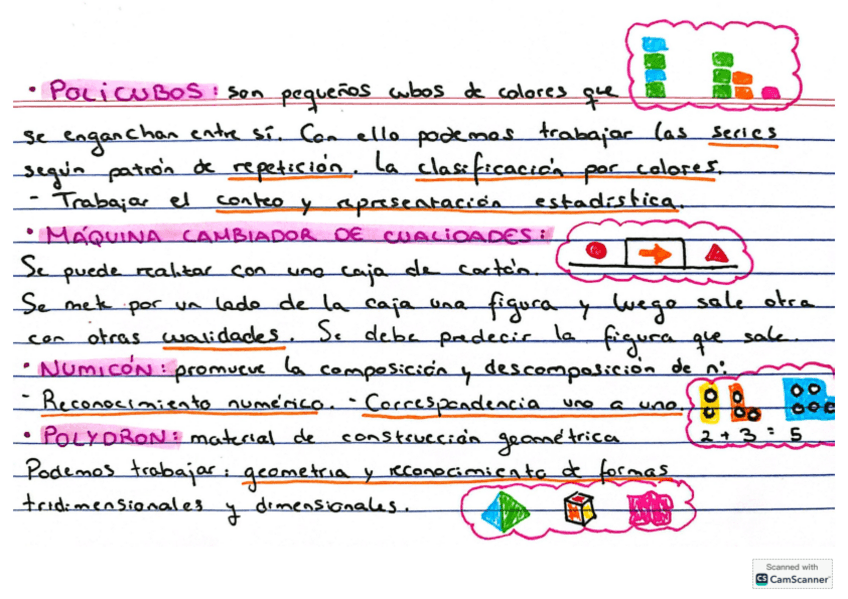 · POLICUBOS: son pequeños cubos de colores que
se enganchan entre sí. Con ello podemos trabajar las series
según patrón de repetición. La clasificación por colores.
- Trabajar el conteo y representación estadística.
· MÁQUINA CAMBIADOR DE CUALIDADES:
Se puede realizar con una caja de cartón.
Se mete por un lado de la caja una figura y luego sale otra
con otras cualidades. Se debe predecir la figura que sale.
· NUMICÓN: promueve la composición y descomposición de nº
- Reconocimiento numérico. - Correspondencia uno a uno.
2 + 3 = 5
· POLYDRON: material de construcción geométrica
Podemos trabajar: geometria y reconocimiento de formas
tridimensionales y dimensionales.
Scanned with
CS CamScanner